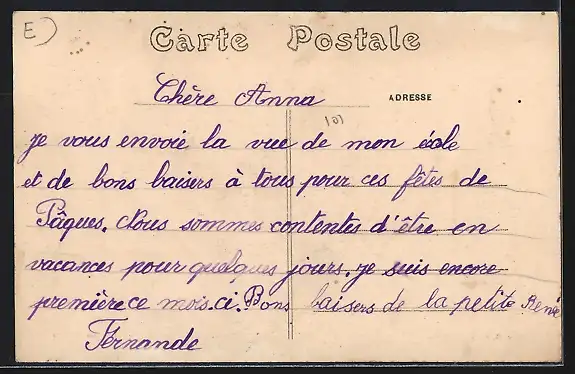 E)
Carte Postale
Chère Anna
ADRESSE
101
Je vous envoie la vue de mon école
et de bons baisers à tous pour ces fêtes de
Pâques. Nous sommes contentes d'être en
vacances pour quelques jours. je suis encore
première ce mois.ci. Bons baisers de la petite Renée
Fernande